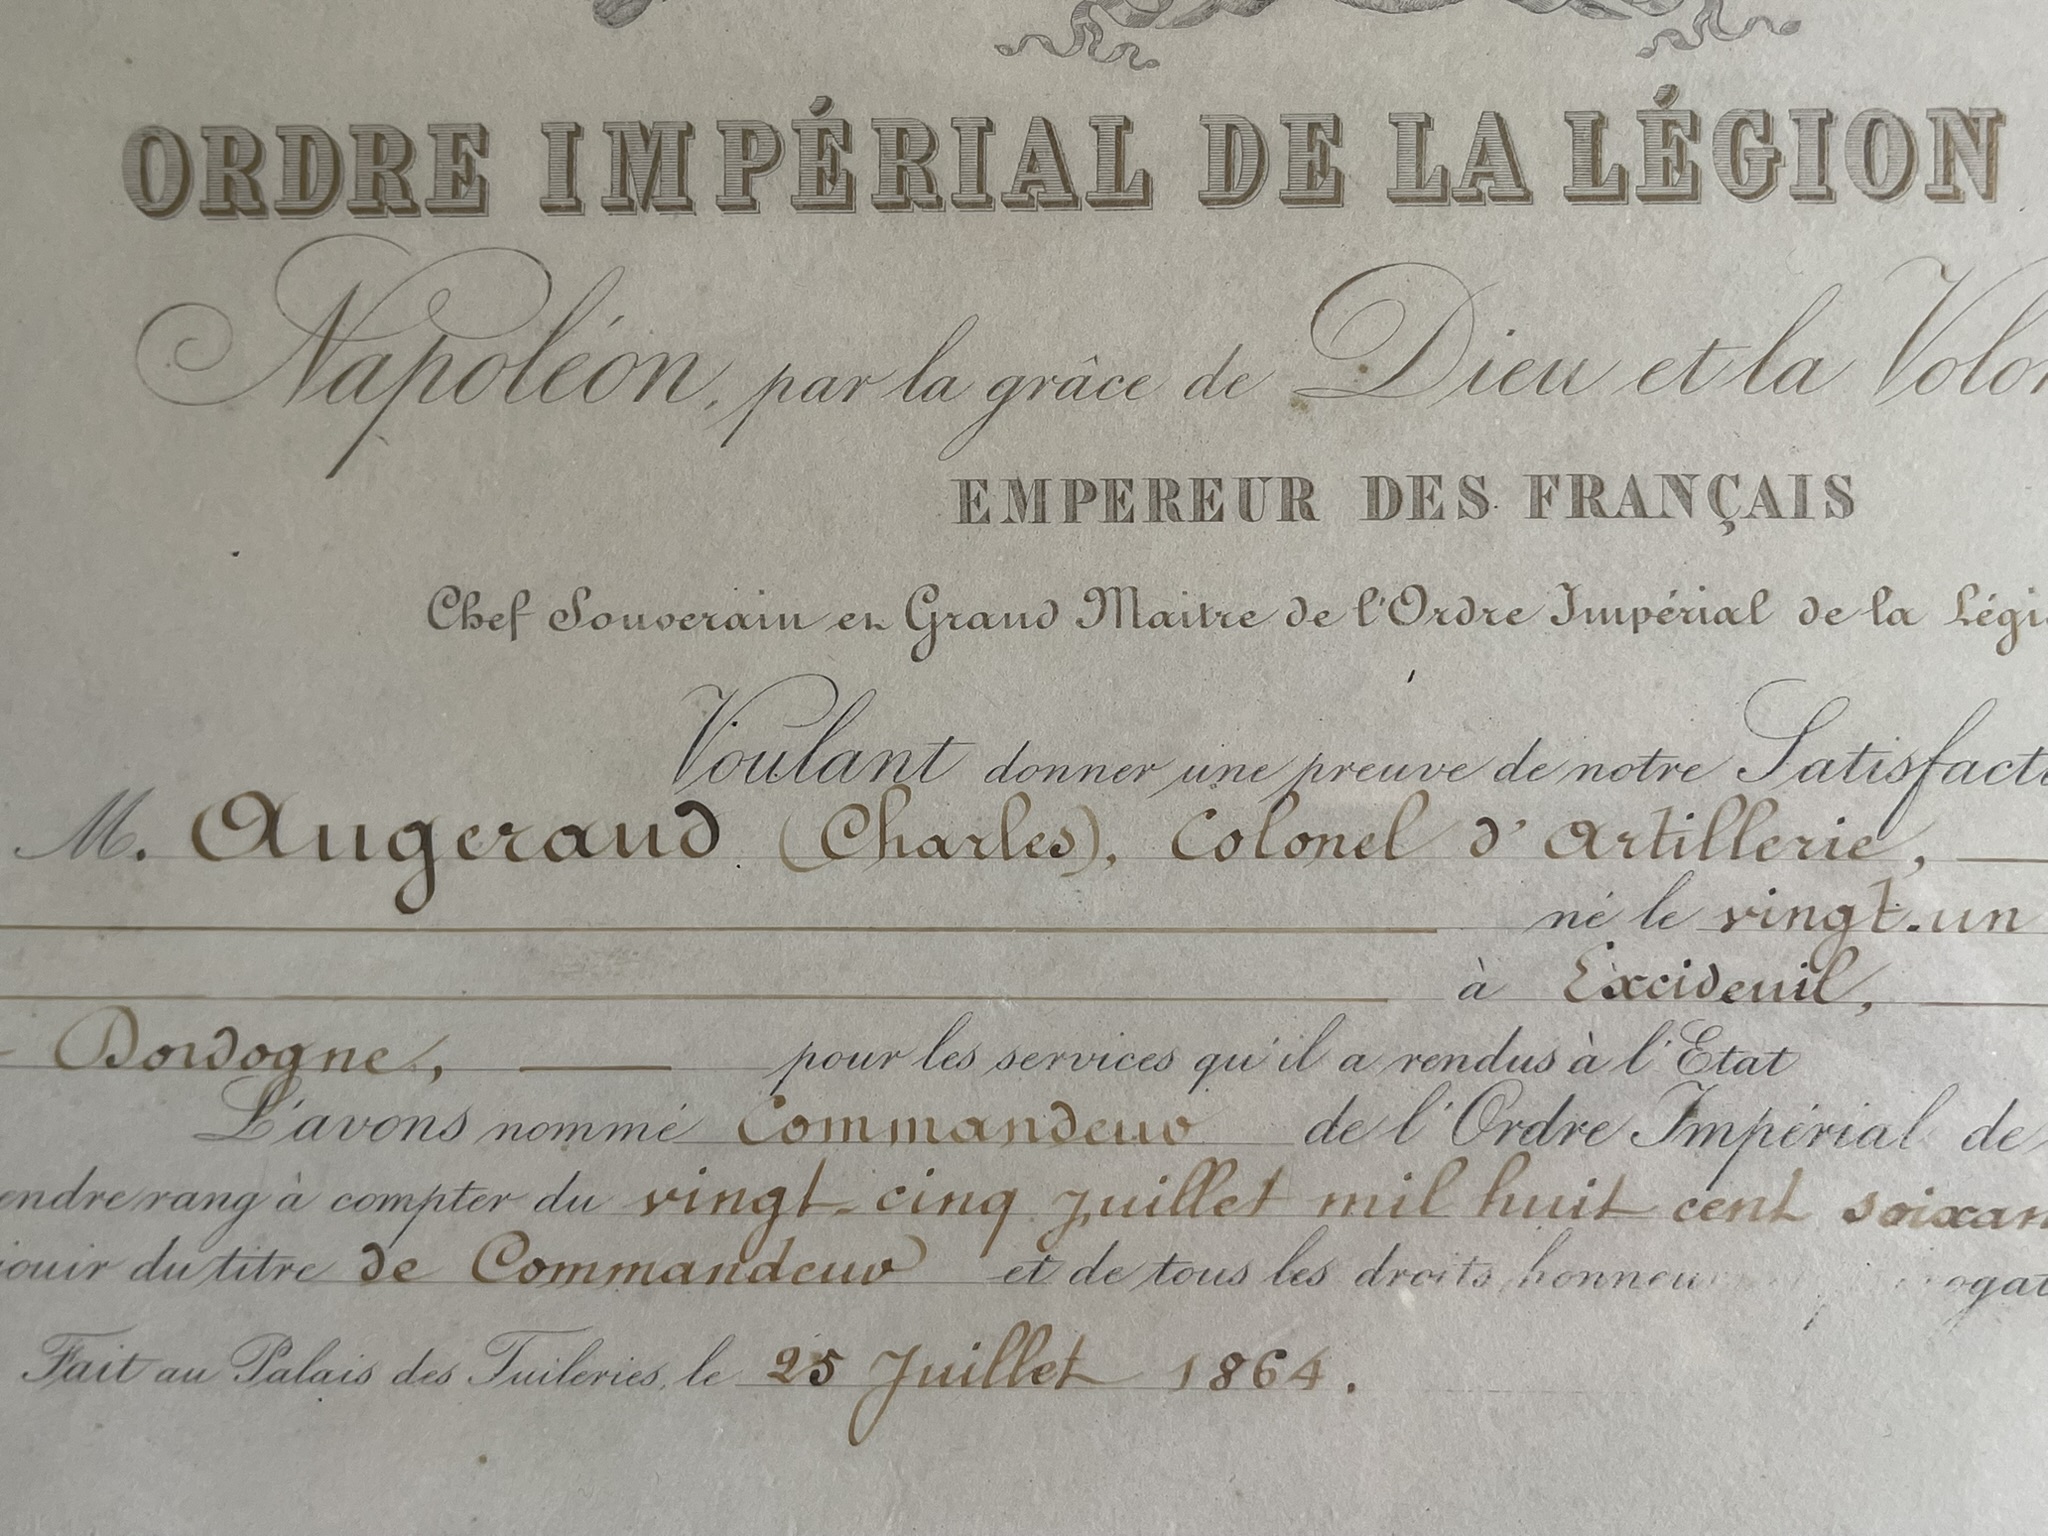 ORDRE IMPÉRIAL DE LA LÉGION
Napoléon, par la grâce de Dieu et la Volon
EMPEREUR DES FRANÇAIS
Chef Souverain et Grand Maitre de l'Ordre Impérial de la Légi
Voulant donner une preuve de notre Satisfact
M. Augeraud (Charles), Colonel d'Artillerie,
né le vingt-un
à Excideuil,
Dordogne, pour les services qu'il a rendus à l'Etat
L'avons nommé Commandeur de l'Ordre Impérial de
endre rang à compter du vingt-cinq Juillet mil huit cent soixan
jouir du titre de Commandeur et de tous les droits, honneu ogat
Fait au Palais des Tuileries, le 25 Juillet 1864.